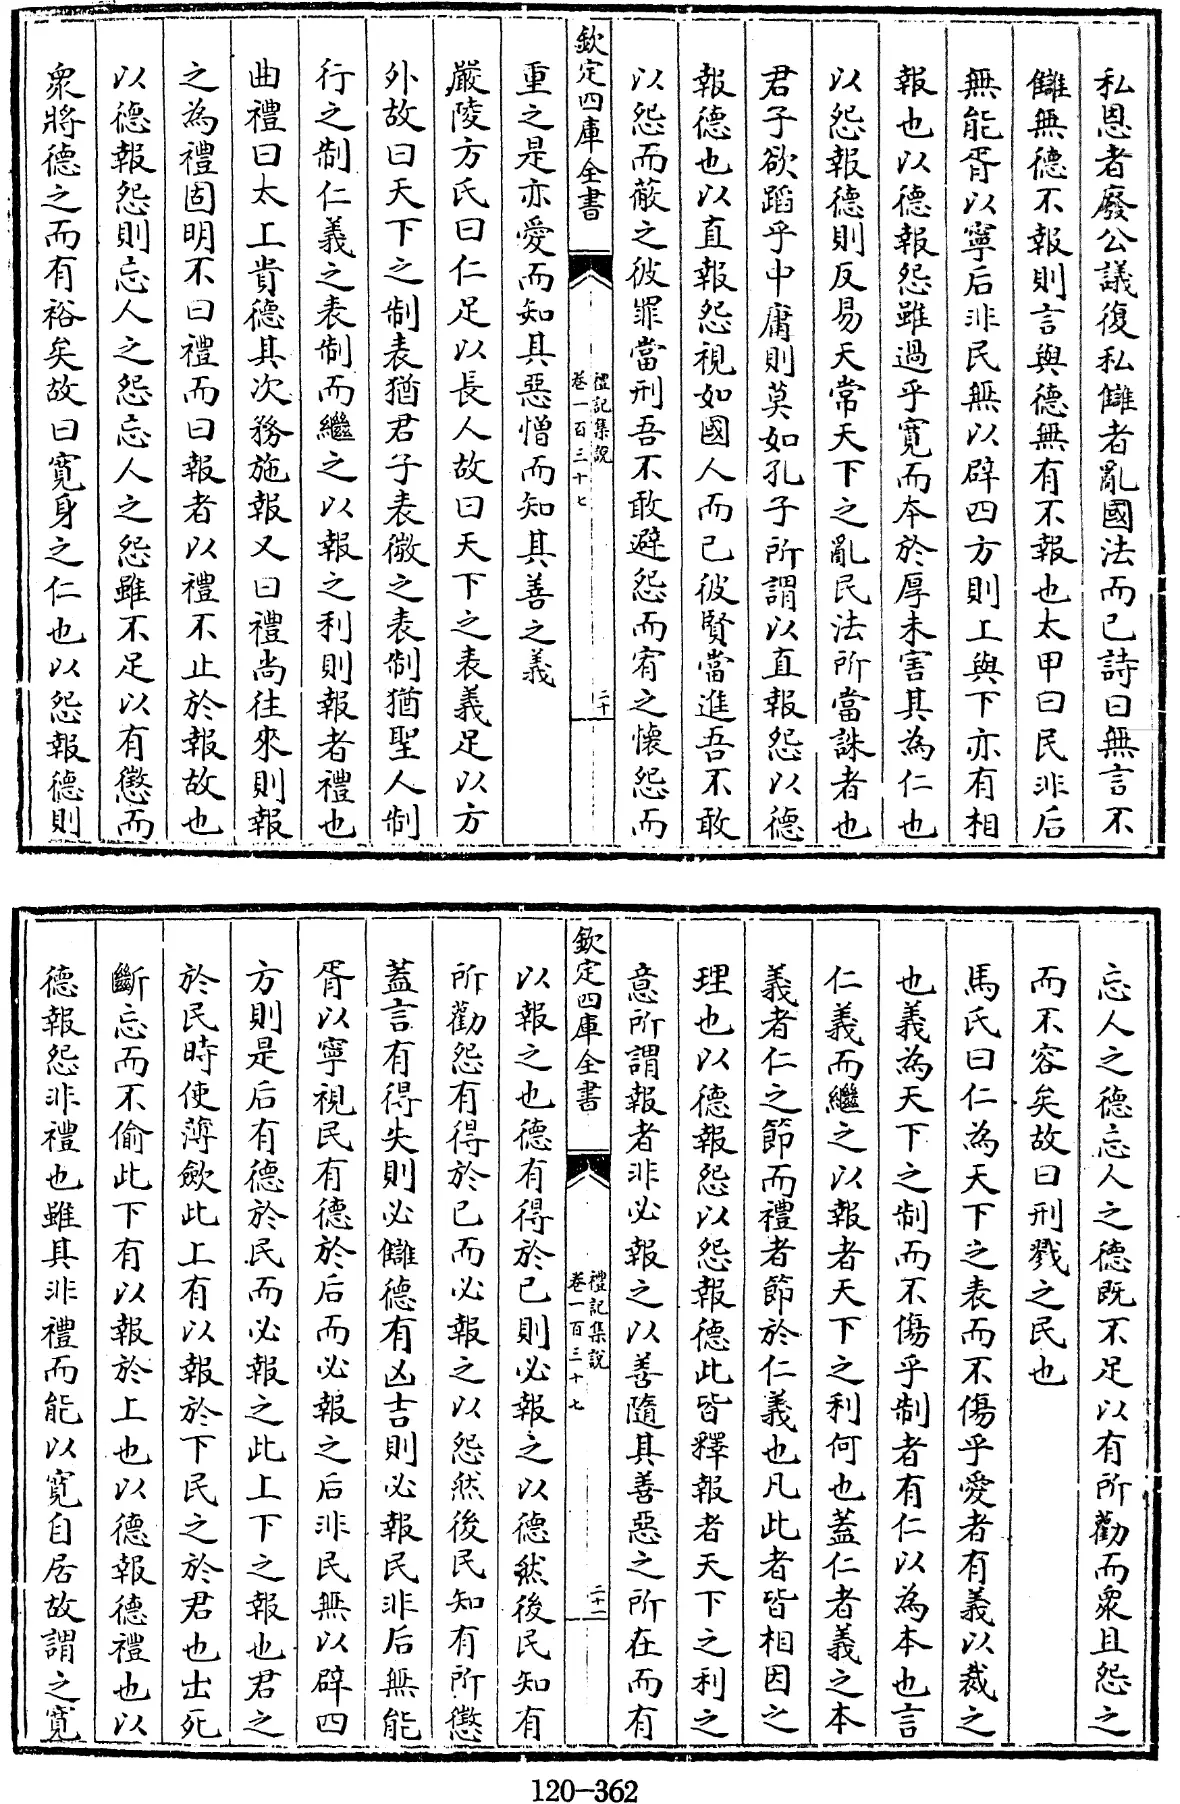 私恩者廢公議復私讎者亂國法而已詩曰無言不
讎無德不報則言與德無有不報也太甲曰民非后
無能胥以寧后非民無以辟四方則上與下亦有相
報也以德報怨雖過乎寬而本於厚未害其為仁也
以怨報德則反易天常天下之亂民法所當誅者也
君子欲蹈乎中庸則莫如孔子所謂以直報怨以德
報德也以直報怨視如國人而已彼賢當進吾不敢
以怨而蔽之彼罪當刑吾不敢避怨而宥之懷怨而
欽定四庫全書
禮記集說
卷一百三十七
二十
重之是亦愛而知其惡憎而知其善之義
嚴陵方氏曰仁足以長人故曰天下之表義足以方
外故曰天下之制表猶君子表微之表制猶聖人制
行之制仁義之表制而繼之以報之利則報者禮也
曲禮曰太上貴德其次務施報又曰禮尚往來則報
之為禮固明不曰禮而曰報者以禮不止於報故也
以德報怨則忘人之怨忘人之怨雖不足以有懲而
衆將德之而有裕矣故曰寬身之仁也以怨報德則
忘人之德忘人之德既不足以有所勸而衆且怨之
而不容矣故曰刑戮之民也
馬氏曰仁為天下之表而不傷乎愛者有義以裁之
也義為天下之制而不傷乎制者有仁以為本也言
仁義而繼之以報者天下之利何也蓋仁者義之本
義者仁之節而禮者節於仁義也凡此者皆相因之
理也以德報怨以怨報德此皆釋報者天下之利之
意所謂報者非必報之以善隨其善惡之所在而有
欽定四庫全書
禮記集說
卷一百三十七
二十一
以報之也德有得於已則必報之以德然後民知有
所勸怨有得於已而必報之以怨然後民知有所懲
蓋言有得失則必讎德有凶吉則必報民非后無能
胥以寧視民有德於后而必報之后非民無以辟四
方則是后有德於民而必報之此上下之報也君之
於民時使薄歛此上有以報於下民之於君也出死
斷忘而不偷此下有以報於上也以德報德禮也以
德報怨非禮也雖其非禮而能以寬自居故謂之寬
120-362